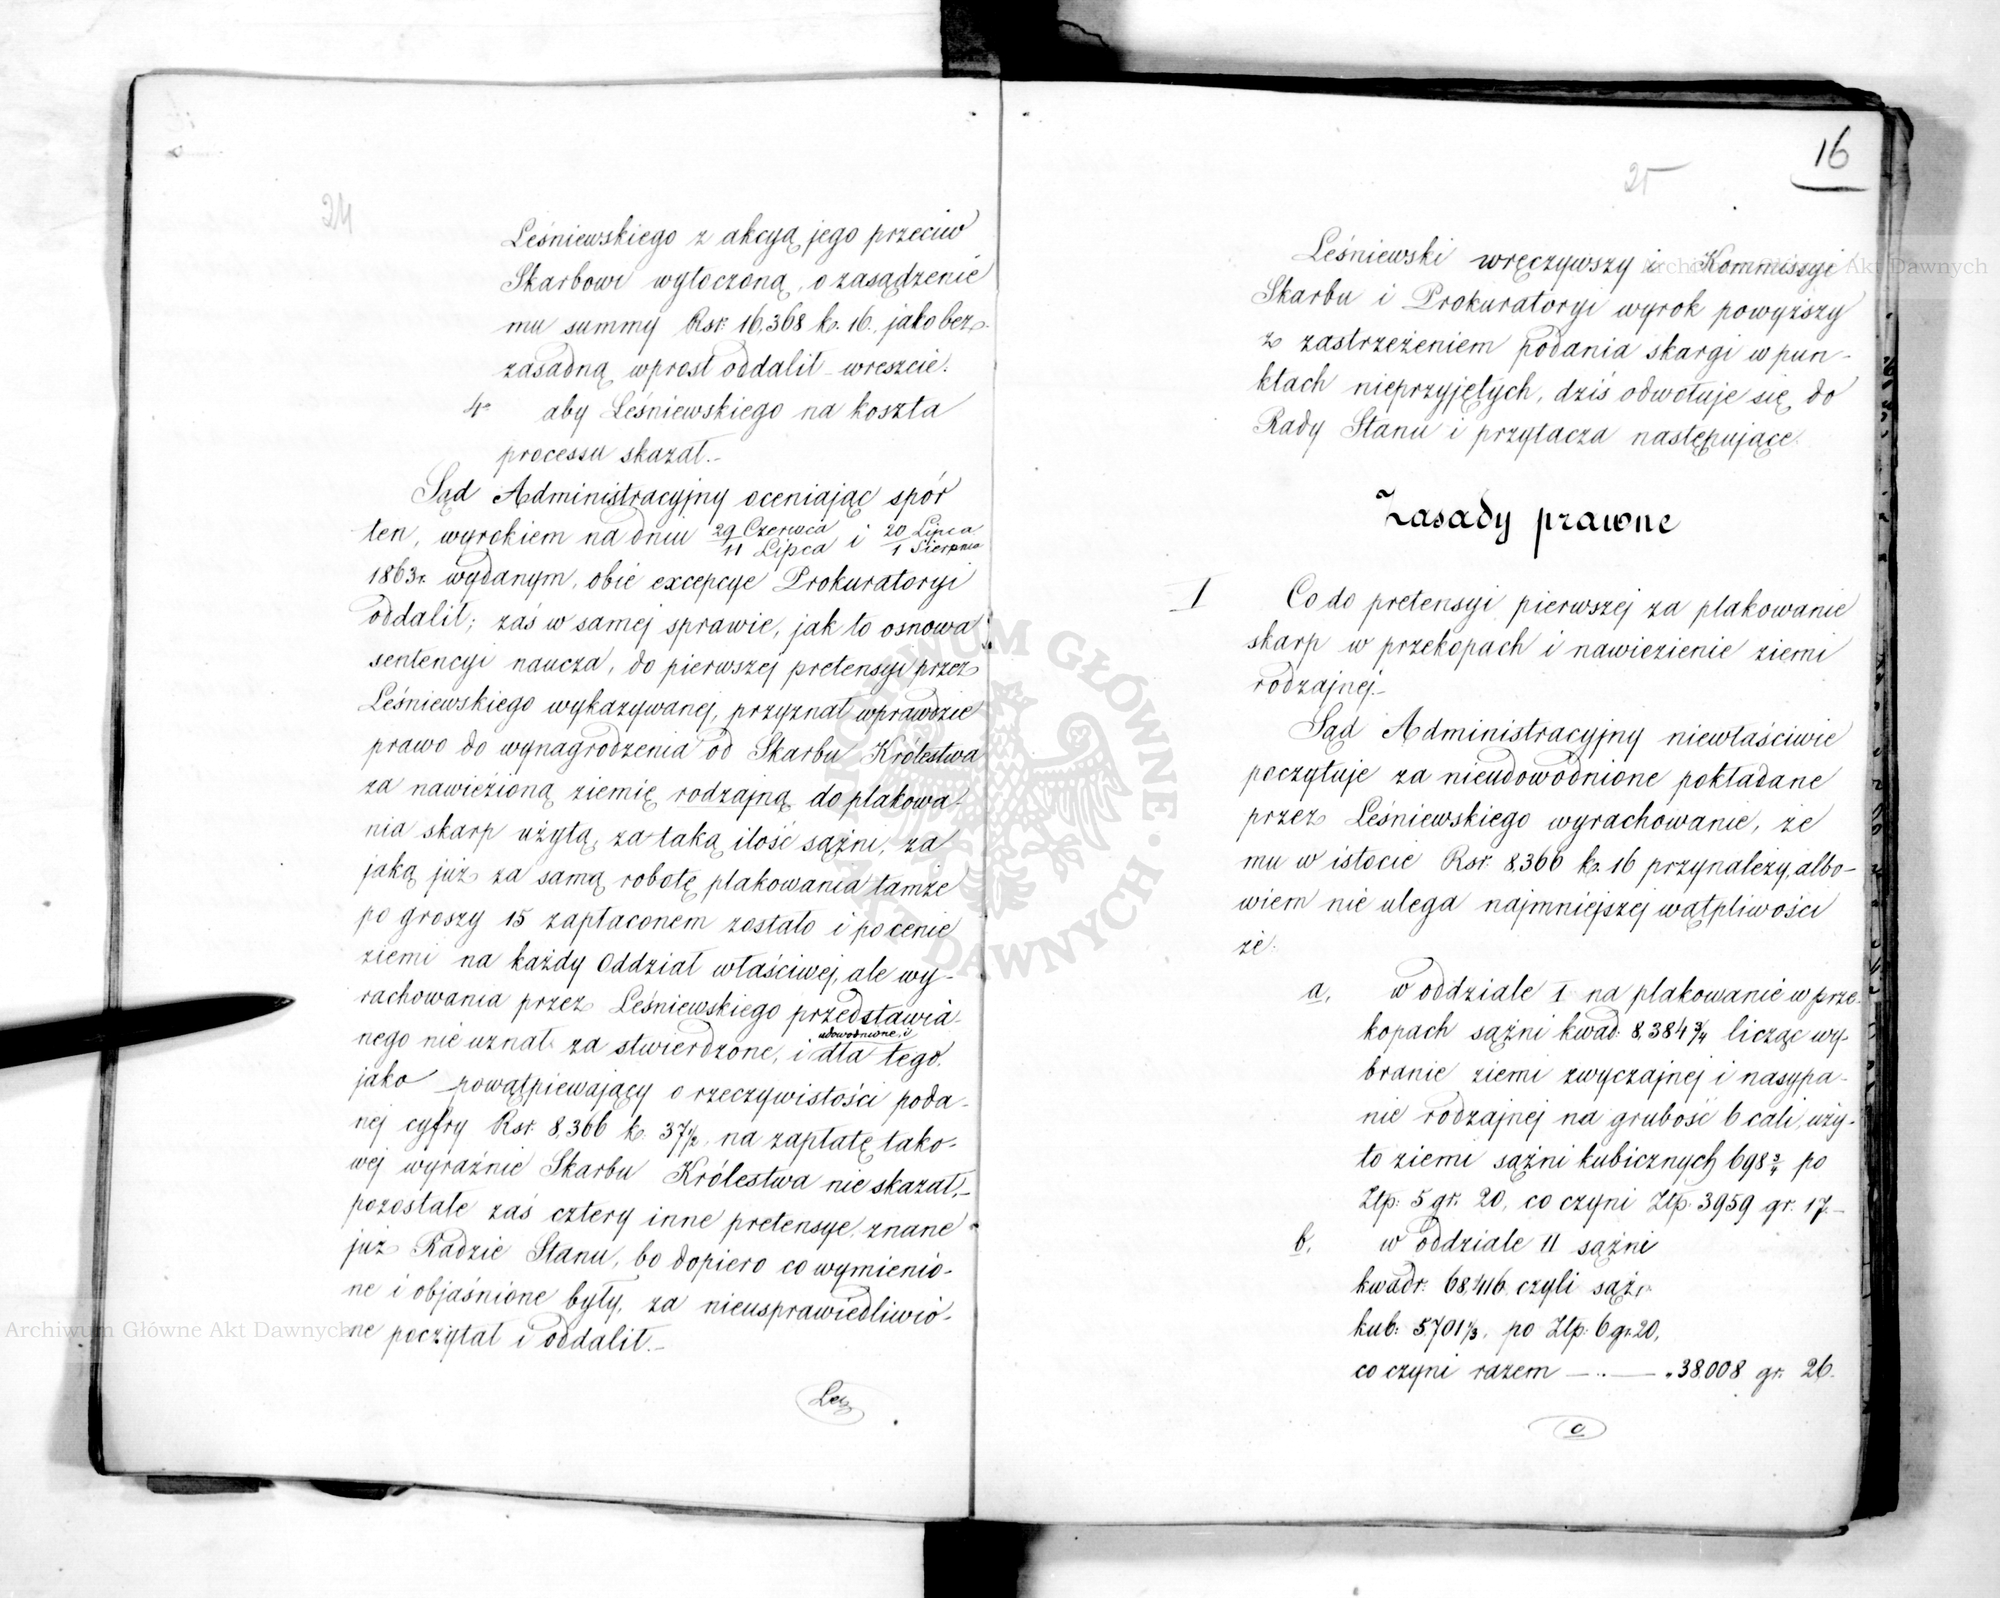 24
Leśniewskiego z akcyą jego przeciw
Skarbowi wytoczoną, o zasądzenie
mu summy Rsr. 16,368 k. 16. jako bez-
zasadną wprost oddalił – wreszcie:
4º aby Leśniewskiego na koszta
processu skazał.–
Sąd Administracyjny oceniając spór
ten, wyrokiem na dniu 29 Czerwca / 11 Lipca i 20 Lipca / 1 Sierpnia
1863r. wydanym, obie excepcye Prokuratoryi
oddalił; zaś w samej sprawie, jak to osnowa
sentencyi naucza, do pierwszej pretensyi przez
Leśniewskiego wykazywanej, przyznał wprawdzie
prawo do wynagrodzenia od Skarbu Królestwa
za nawiezioną ziemię rodzajną do plakowa-
nia skarp użytą, za taką ilość sążni, za
jaką już za samą robotę plakowania tamże
po groszy 15 zapłaconem zostało i po cenie
ziemi na każdy Oddział właściwej, ale wy-
rachowania przez Leśniewskiego przedstawia-
nego nie uznał za stwierdzone, udowodnione, i dla tego,
jako powątpiewający o rzeczywistości poda-
nej cyfry Rsr. 8,366 k. 37½, na zapłatę tako-
wej wyraźnie Skarbu Królestwa nie skazał,–
pozostałe zaś cztery inne pretensye, znane
już Radzie Stanu, bo dopiero co wymienio-
ne i objaśnione były, za nieusprawiedliwio-
ne poczytał i oddalił.–
Lecz
16
25
Leśniewski wręczywszy i Kommissyi
Skarbu i Prokuratoryi wyrok powyższy
z zastrzeżeniem podania skargi w pun-
ktach nieprzyjętych, dziś odwołuje się do
Rady Stanu i przytacza następujące.
Zasady prawne
I Co do pretensyi pierwszej za plakowanie
skarp w przekopach i nawiezienie ziemi
rodzajnej.–
Sąd Administracyjny niewłaściwie
poczytuje za nieudowodnione pokładane
przez Leśniewskiego wyrachowanie, że
mu w istocie Rsr. 8,366 k. 16 przynależy, albo-
wiem nie ulega najmniejszej wątpliwości
że:
a, w oddziale I na plakowanie w prze-
kopach sążni kwad: 8,384¾ licząc wy-
branie ziemi zwyczajnej i nasypa-
nie rodzajnej na grubość 6 cali, uży-
to ziemi sążni kubicznych 698¾ po
Złp. 5 gr. 20, co czyni Złp. 3959 gr. 17.–
b, w oddziale II sążni
kwadr. 68,416, czyli sąż,
kub: 5,701⅓, po Złp. 6 gr. 20,
co czyni razem –.– „38.008 gr. 26.
c
ARCHIWUM GŁÓWNE · AKT DAWNYCH ·
Archiwum Główne Akt Dawnych
Archiwum Główne Akt Dawnych